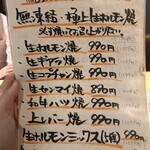 無凍結・極上生ホルモン焼
必ず焼いてお召し上がり下さい
生ホルモン焼 990円
生ギアラ焼 990円
生コプチャン焼 990円
生センマイ焼 890円
和牛ハツ焼 990円
上レバー焼 990円
生ホルモンミックス(5種) 990円